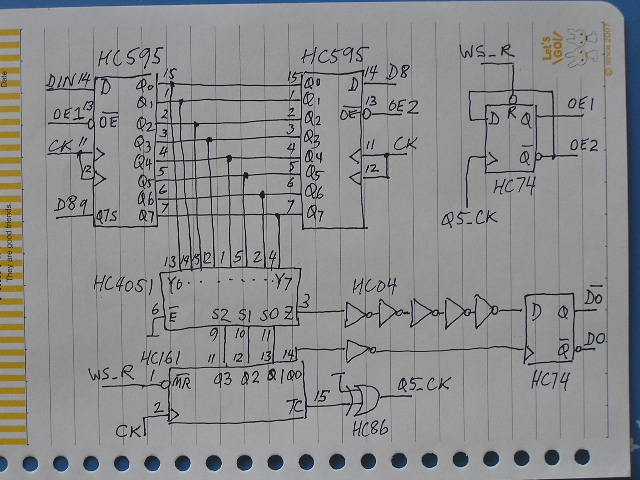 HC595
HC595
WS_R
Let's GO!
© since 2007
Date
They are good friends.
DIN 14
D
Q0
15
15
Q0
D
14
D8
OE1
13
OE
Q1
1
1
Q1
OE
13
OE2
Q2
2
2
Q2
CK
11
12
Q3
3
3
Q3
11
CK
12
Q4
4
4
Q4
Q5
5
5
Q5
Q6
6
6
Q6
D8
9
Q7S
Q7
7
7
Q7
D
R
Q
OE1
Q
OE2
HC74
Q5_CK
13
14
15
12
1
5
2
4
HC4051
Y0
Y7
6
E
S2
S1
S0
Z
3
HC04
9
10
11
D
Q
D0
Q
D0
HC74
HC161
11
12
13
14
WS_R
1
MR
Q3
Q2
Q1
Q0
2
CK
TC
15
HC86
Q5_CK